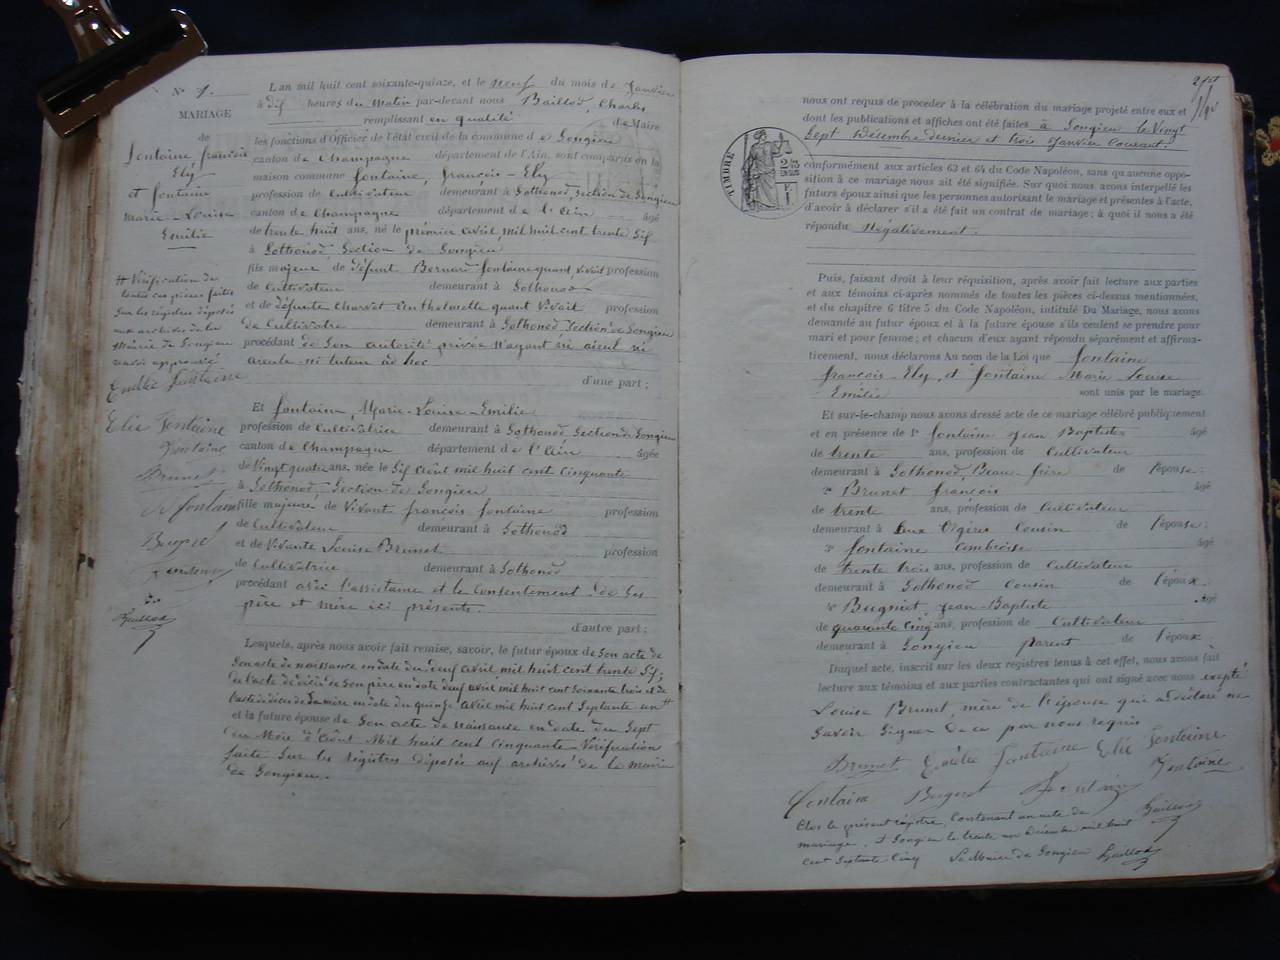 N° 1.
MARIAGE
de
Fontaine françois
Ely
et fontaine
marie-Louise
Emilie
# Vérification de
toutes ces pièces faites
Sur les registres déposés
aux archives de la
Mairie de Songieu
renvoi approuvé
Emélie Fontaine
Elie Fontaine
Fontaine
Brunet
fontaine
Bugniet
Baillod
L'an mil huit cent soixante-quinze, et le neuf du mois de Janvier
à dix heures du matin par-devant nous Baillod, Charles
remplissant en qualité de Maire
les fonctions d'Officier de l'état civil de la commune de Songieu
canton de Champagne département de l'Ain, sont comparus en la
maison commune fontaine, françois-Ely
profession de Cultivateur demeurant à Sothonod, Section de Songieu
canton de Champagne département de l'Ain âgé
de trente huit ans, né le premier avril, mil huit cent trente Six
à Sothonod Section de Songieu
fils majeur de défunt Bernard fontaine quand vivait profession
de Cultivateur demeurant à Sothonod
et de défunte Charvet Anthelmette quant Vivait profession
de Cultivatre demeurant à Sothonod Section de Songieu
procédant de Son autorité privée N'ayant ni aieul ni
aieule ni tuteur ad hoc
d'une part ;
Et fontaine, Marie-Louise-Emilie
profession de Cultivatrice demeurant à Sothonod Section de Songieu
canton de Champagne département de l'Ain âgée
de Vingt quatre ans, née le Sept Août mil huit cent Cinquante
à Sothonod Section de Songieu
fille majeure de Vivant françois fontaine profession
de Cultivateur demeurant à Sothonod
et de Vivante Louise Brunet profession
de Cultivatrice demeurant à Sothonod
procédant avec l'assistance et le Consentement de Ses
père et mère ici présents.
d'autre part ;
Lesquels, après nous avoir fait remise, savoir, le futur époux de Son acte de
Son acte de naissance en date du avril mil huit cent trente Six;
de l'acte de décès de Son père en date avril mil huit cent Soixante trois et de
l'acte de décès de Sa mère en date du quinze avril mil huit cent Septante un #
et la future épouse de Son acte de naissance en date du Sept
du Mois d'Août Mil huit cent cinquante Vérification
faite Sur les registres déposés aux archives de la mairie
de Songieu.
2
TIMBRE
nous ont requis de procéder à la célébration du mariage projeté entre eux et
dont les publications et affiches ont été faites à Songieu le Vingt
Sept Décembre dernier et trois Janvier Courant.
conformément aux articles 63 et 64 du Code Napoléon, sans qu'aucune oppo-
sition à ce mariage nous ait été signifiée. Sur quoi nous avons interpellé les
futurs époux ainsi que les personnes autorisant le mariage et présentes à l'acte,
d'avoir à déclarer s'il a été fait un contrat de mariage ; à quoi il nous a été
répondu Négativement.
Puis, faisant droit à leur réquisition, après avoir fait lecture aux parties
et aux témoins ci-après nommés de toutes les pièces ci-dessus mentionnées,
et du chapitre 6 titre 5 du Code Napoléon, intitulé Du Mariage, nous avons
demandé au futur époux et à la future épouse s'ils veulent se prendre pour
mari et pour femme ; et chacun d'eux ayant répondu séparément et affirma-
tivement, nous déclarons Au nom de la Loi que fontaine
françois-Ely, et fontaine Marie Louise
Emilie sont unis par le mariage.
Et sur-le-champ nous avons dressé acte de ce mariage célébré publiquement
et en présence de 1° fontaine Jean Baptiste âgé
de trente ans, profession de Cultivateur
demeurant à Sothonod, Beau-frère de l'épouse;
2° Brunet françois âgé
de trente ans, profession de Cultivateur
demeurant à Cousin de l'épouse;
3° fontaine ambroise âgé
de trente trois ans, profession de Cultivateur
demeurant à Sothonod Cousin de l'époux.
4° Bugniet, Jean-Baptiste âgé
de quarante cinq ans, profession de Cultivateur
demeurant à Songieu parent de l'époux
Duquel acte, inscrit sur les deux registres tenus à cet effet, nous avons fait
lecture aux témoins et aux parties contractantes qui ont signé avec nous excepté
Louise Brunet, mère de l'épouse qui a déclaré ne
Savoir Signer de ce par nous requis
Brunet Emélie Fontaine Elie Fontaine
Fontaine
Fontaine Bugniet Baillod
Clos le présent régistre, Contenant un acte de
mariage, à Songieu le trente un décembre mil huit
cent Septante Cinq Le Maire de Songieu Baillod